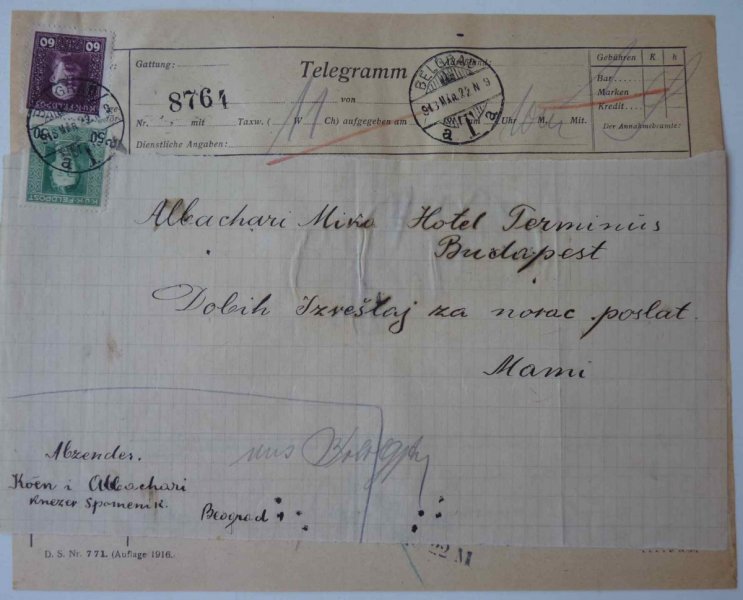 60 60
K.U.K. FELDPOST
50 50
K.U.K. FELDPOST
Gattung:
Telegramm
Gebühren K h
Bar
8764
von
Marken
Kredit
Nr. mit Taxw. ( 11 W Ch) aufgegeben am / um Uhr M. Mit.
Der Annahmebeamte:
Dienstliche Angaben:
BELGRAD
1
a
Albachari Miko Hotel Terminus
Budapest
Dobih Izveštaj za novac poslat.
Mami
Abzender.
Koen i Albachari
Knezev Spomenik.
Beograd
22 M
D. S. Nr. 771. (Auflage 1916.